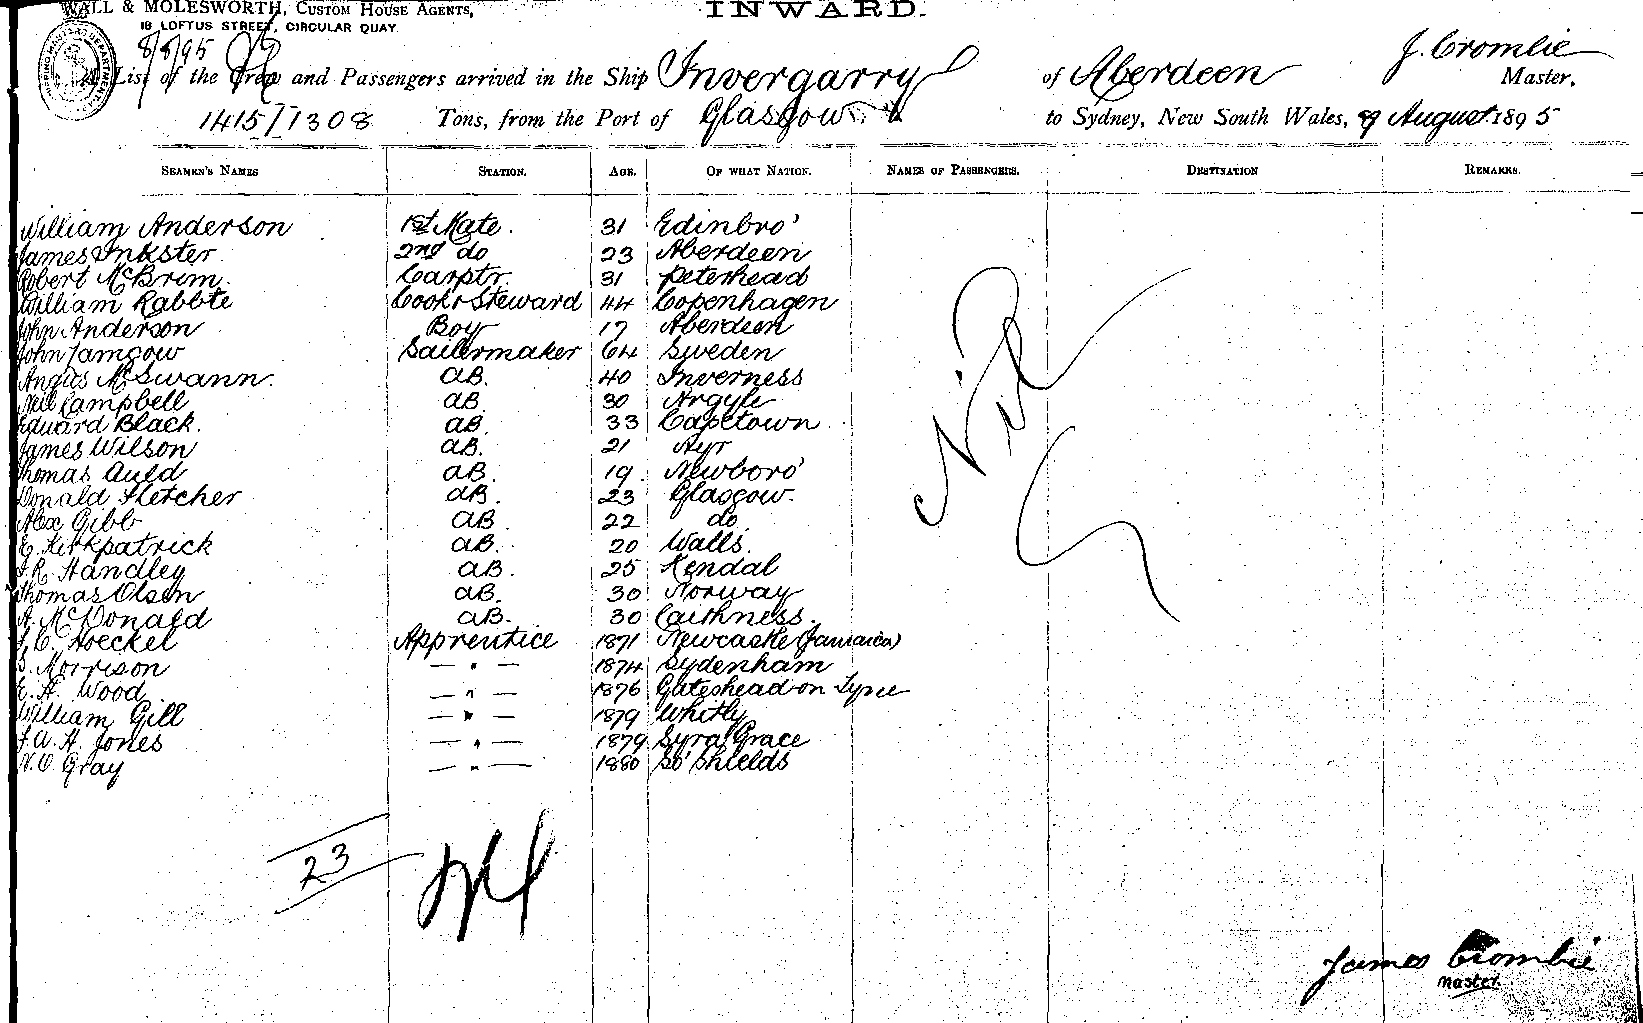 WALL & MOLESWORTH, CUSTOM HOUSE AGENTS,
18 LOFTUS STREET, CIRCULAR QUAY.
INWARD.
8/8/95
A List of the Crew and Passengers arrived in the Ship Invergarry of Aberdeen J. Crombie Master.
1415/1308 Tons, from the Port of Glasgow to Sydney, New South Wales, 9 August 1895
SEAMEN'S NAMES STATION. AGE. OF WHAT NATION. NAMES OF PASSENGERS. DESTINATION REMARKS.
William Anderson 1st Mate. 31 Edinbro'
James Inkster 2nd do 23 Aberdeen
Robert McBrim. Carptr. 31 Peterhead
William Rabbte Cook & Steward 44 Copenhagen
John Anderson Boy 17 Aberdeen
John Jamgow Sailermaker 64 Sweden
Angus McSwann. AB. 40 Inverness
Neil Campbell AB. 30 Argyle
Edward Black. AB. 33 Capetown
James Wilson AB. 21 Ayr
Thomas Auld AB. 19 Newboro'
Donald Fletcher AB. 23 Glasgow.
Alex Gibb AB. 22 do
E. Kirkpatrick AB. 20 Walls.
J.R. Handley AB. 25 Kendal
Thomas Olsen AB. 30 Norway
A. McDonald AB. 30 Caithness.
J. C. Hoeckel Apprentice 1871 Newcastle (Jamaica)
S. Morrison — " — 1874 Sydenham
E. A. Wood — " — 1876 Gateshead on Tyne
William Gill — " — 1879 Whitly
J. A. H. Jones — " — 1879 Syra Grace
W. O. Gray — " — 1880 So' Shields
Nil
23
James Crombie
Master.